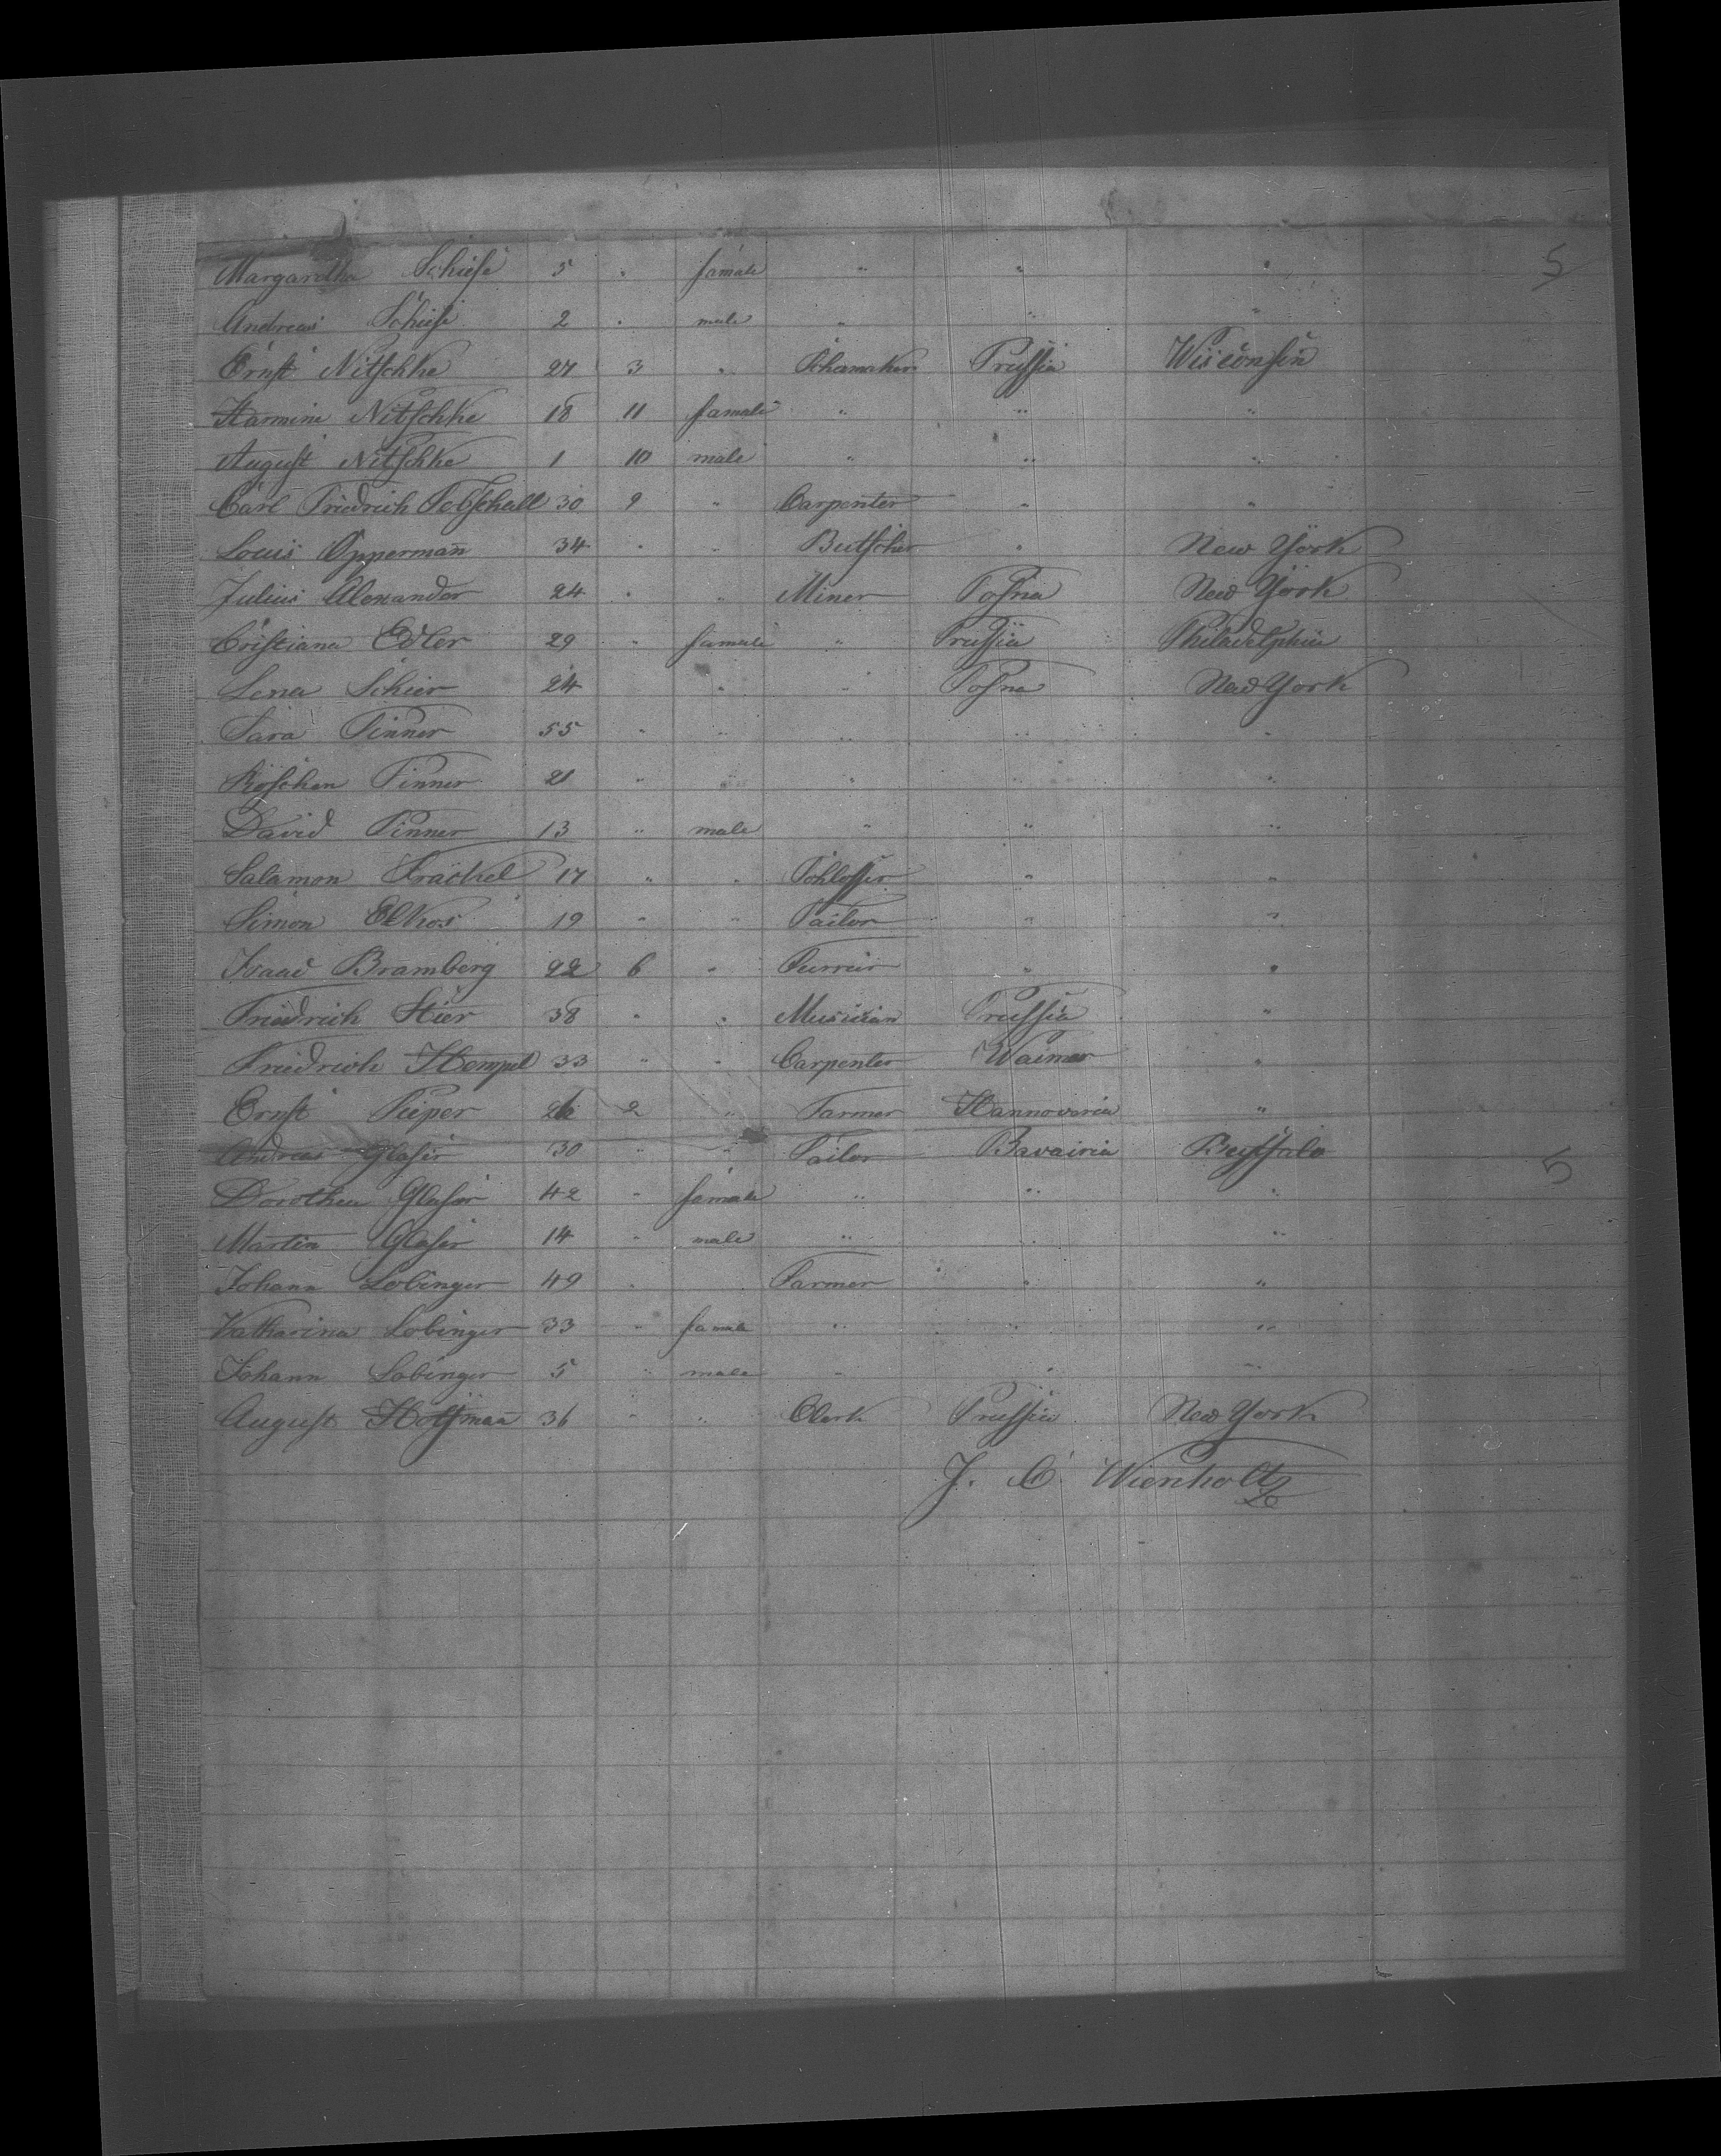 Margaretha Schiefe 5 " famale " " " 5
Andreas Schiefe 2 " male " " "
Ernst Nitschke 27 3 " Schamaker Prussia Wisconsin
Harmine Nitschke 18 11 famale " " "
August Nitschke 1 10 male " " "
Carl Friedrich 30 9 " Carpenter " "
Louis Opperman̄ 34 " " Butscher " New York
Julius Alexander 24 " " Miner Posna New York
Cristiana Edler 29 " famale " Prussia Philadelphia
Lena Schier 24 " " Posna New York
Sara Pinner 55 " " " " "
Röschen Pinner 21 " " " " "
David Pinner 13 " male " " "
Salamon Fräckel 17 " " Schlosser " "
Simon Elkos 19 " " Tailor " "
Isaac Bramberg 22 6 " Furreir " "
Friedrich Stier 38 " " Musician Prussia "
Friedrich Hempel 33 " " Carpenter Waimar "
Ernst Pieper 26 2 " Farmer Hannovaria "
Andreas Glaser 30 " " Tailor Bavairia Buffalo 5
Dorothea Glaser 42 " famale " " "
Martin Glaser 14 " male " " "
Johann Lobinger 49 " Farmer " "
Katharina Lobinger 33 " famale " " "
Johann Lobinger 5 " male " " "
August Hoffman̄ 36 " " Clerk Prussia New York
J. C. Wienholtz